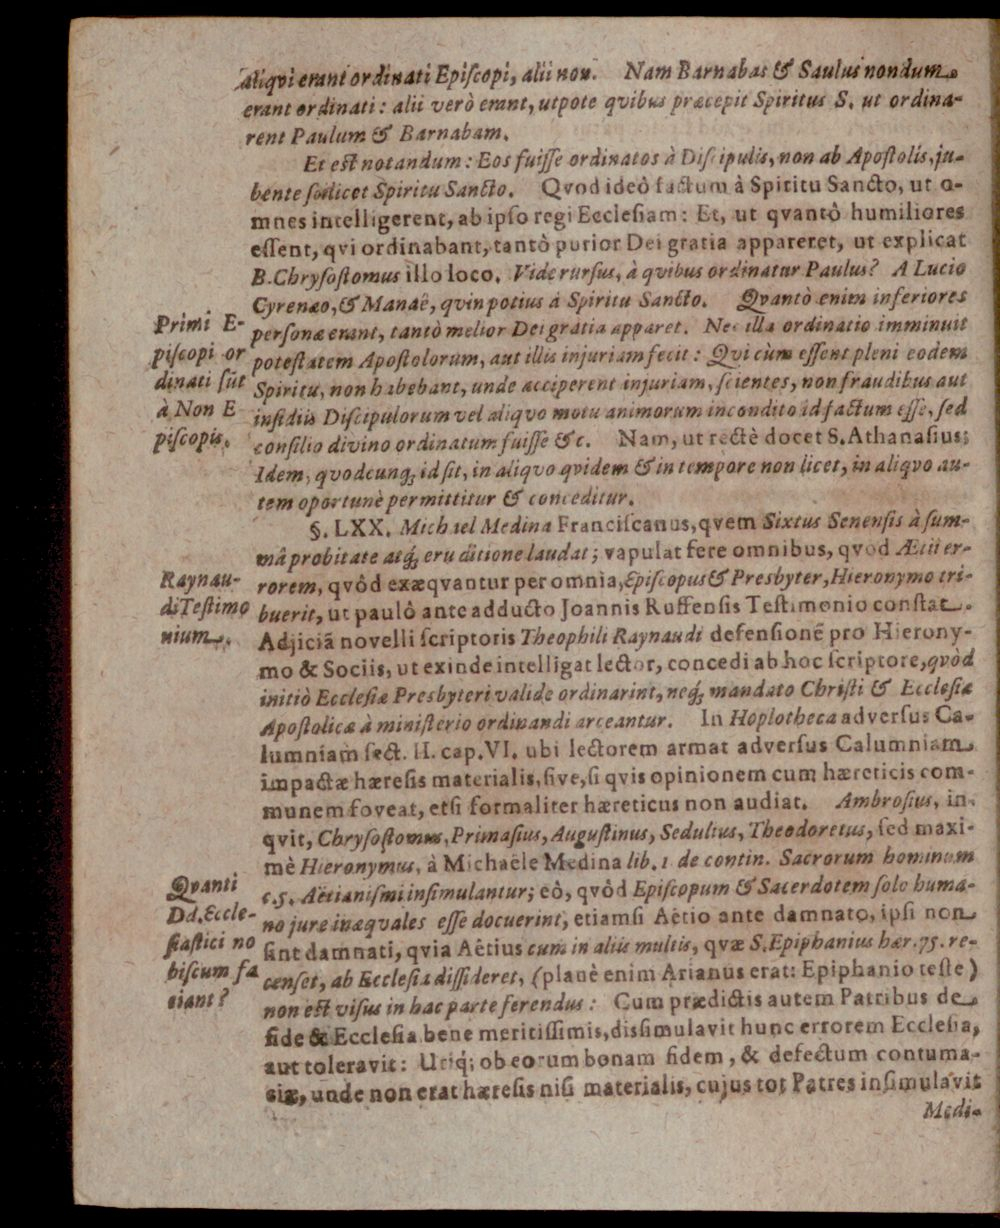 aliqvi erant ordinati Epiſcopi, alii non. Nam Barnabas & Saulus nondum
erant ordinati: alii verò erant, utpote qvibus præcepit Spiritus S. ut ordina-
rent Paulum & Barnabam.
Et est notandum: Eos fuiſſe ordinatos à Diſcipulis, non ab Apoſtolis, ju-
bente ſcilicet Spiritu Sancto. Qvod ideô factum à Spiritu Sancto, ut o-
mnes intelligerent, ab ipſo regi Eccleſiam: Et, ut qvantô humiliores
eſſent, qvi ordinabant, tantò purior Dei gratia appareret, ut explicat
B. Chryſoſtomus illo loco. Vide rurſus, à qvibus ordinatur Paulus? A Lucio
Cyrenæo, & Manaë, qvin potius à Spiritu Sancto. Qvantò enim inferiores
perſonæ erant, tantò melior Dei gratia apparet. Nec illa ordinatio imminuit
poteſtatem Apoſtolorum, aut illis injuriam fecit: Qvi cùm eſſent pleni eodem
Spiritu, non habebant, unde acciperent injuriam, ſcientes, non fraudibus aut
inſidiis Diſcipulorum vel aliqvo motu animorum incondito id factum eſſe, ſed
conſilio divino ordinatum fuiſſe &c. Nam, ut rectè docet S. Athanaſius;
Idem, qvodcunq; id ſit, in aliqvo qvidem & in tempore non licet, in aliqvo au-
tem oportunè permittitur & conceditur.
Primi E-
piſcopi or
dinati ſūt
à Non E
piſcopis.
§. LXX. Michael Medina Franciſcanus, qvem Sixtus Senenſis à ſum-
mâ probitate atq; eruditione laudat; vapulat fere omnibus, qvod Ætii er-
rorem, qvôd exæqvantur per omnia, Epiſcopus & Presbyter, Hieronymo tri-
buerit, ut paulô ante adducto Joannis Ruffenſis Teſtimonio conſtat.
Adjiciã novelli ſcriptoris Theophili Raynaudi defenſionē pro Hierony-
mo & Sociis, ut exinde intelligat lector, concedi ab hoc ſcriptore, qvòd
initiò Eccleſiæ Presbyteri valide ordinarint, neq; mandato Chriſti & Eccleſiæ
Apoſtolicæ à miniſterio ordinandi arceantur. In Hoplotheca adverſus Ca-
lumniam ſect. II. cap. VI. ubi lectorem armat adverſus Calumniam
impactæ hæreſis materialis, ſive, ſi qvis opinionem cum hæreticis com-
munem foveat, etſi formaliter hæreticus non audiat. Ambroſius, in-
qvit, Chryſoſtomus, Primaſius, Auguſtinus, Sedulius, Theodoretus, ſed maxi-
mè Hieronymus, à Michaële Medina lib. 1 de contin. Sacrorum hominum
c. 5. Aëtianiſmi inſimulantur; eô, qvôd Epiſcopum & Sacerdotem ſolo huma-
no jure inæquales eſſe docuerint, etiamſi Aëtio ante damnato, ipſi non
ſint damnati, qvia Aëtius cum in aliis multis, qvæ S. Epiphanius hær. 75. re-
cenſet, ab Eccleſia diſſideret, (planè enim Arianus erat: Epiphanio teſte)
non est viſus in hac parte ferendus: Cum prædictis autem Patribus de
fide & Eccleſia bene meritiſſimis, diſſimulavit hunc errorem Eccleſia,
aut toleravit: Utiq; ob eorum bonam fidem, & defectum contuma-
ciæ, unde non erat hæreſis niſi materialis, cujus tot Patres inſimulavit
Raynau-
di Teſtimo
nium.
Qvanti
Dd. Eccle-
ſiaſtici no
biſcum fa
ciant?
Medi-